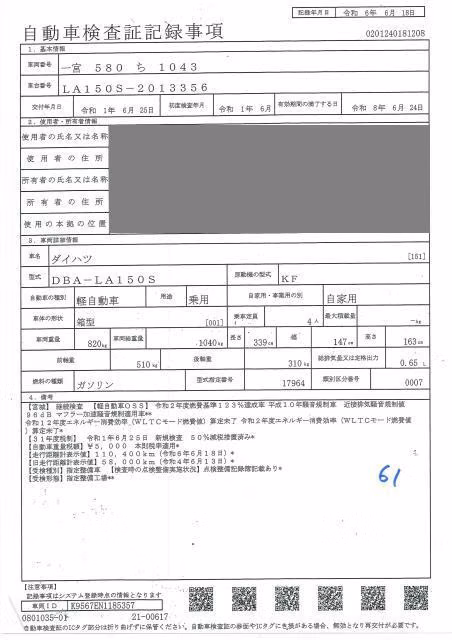 記録年月日 令和 6年 6月 18日
自動車検査証記録事項
0201240181208
1. 基本情報
車両番号 一宮 580 ち 1043
車台番号 LA150S-2013356
交付年月日 令和 1年 6月 25日 初度検査年月 令和 1年 6月 有効期間の満了する日 令和 8年 6月 24日
2. 使用者・所有者情報
使用者の氏名又は名称
使用者の住所
所有者の氏名又は名称
所有者の住所
使用の本拠の位置
3. 車両詳細情報
車名 ダイハツ [151]
型式 DBA-LA150S 原動機の型式 KF
自動車の種別 軽自動車 用途 乗用 自家用・事業用の別 自家用
車体の形状 箱型 [001] 乗車定員 4人 最大積載量 -kg
車両重量 820kg 車両総重量 1040kg 長さ 339cm 幅 147cm 高さ 163cm
前軸重 510kg 後軸重 310kg 総排気量又は定格出力 0.65 L
燃料の種類 ガソリン 型式指定番号 17964 類別区分番号 0007
4. 備考
継続検査 【軽自動車OSS】 令和2年度燃費基準123%達成車 平成10年騒音規制車 近接排気騒音規制値
96dB マフラー加速騒音規制適用車**
令和12年度エネルギー消費効率(WLTCモード燃費値)算定未了 令和2年度エネルギー消費効率(WLTCモード燃費値
)算定未了*
【31年度税制】 令和1年6月25日 新規検査 50%減税措置済み*
【自動車重量税額】¥5,000 本則税率適用*
【走行距離計表示値】110,400km(令和6年6月18日)*
【旧走行距離計表示値】58,000km(令和4年6月13日)*
【受検種別】指定整備車 【検査時の点検整備実施状況】点検整備記録簿記載あり*
【受検形態】指定整備工場**
61
【注意事項】
記録事項はシステム登録時点の情報となります
車両ID K9567EN1185357
0801035-01 21-00617
自動車検査証のICタグ部分は折り曲げずに保管ください。自動車検査証の券面やICタグに毛損がある場合、無効となり再交付が必要です。